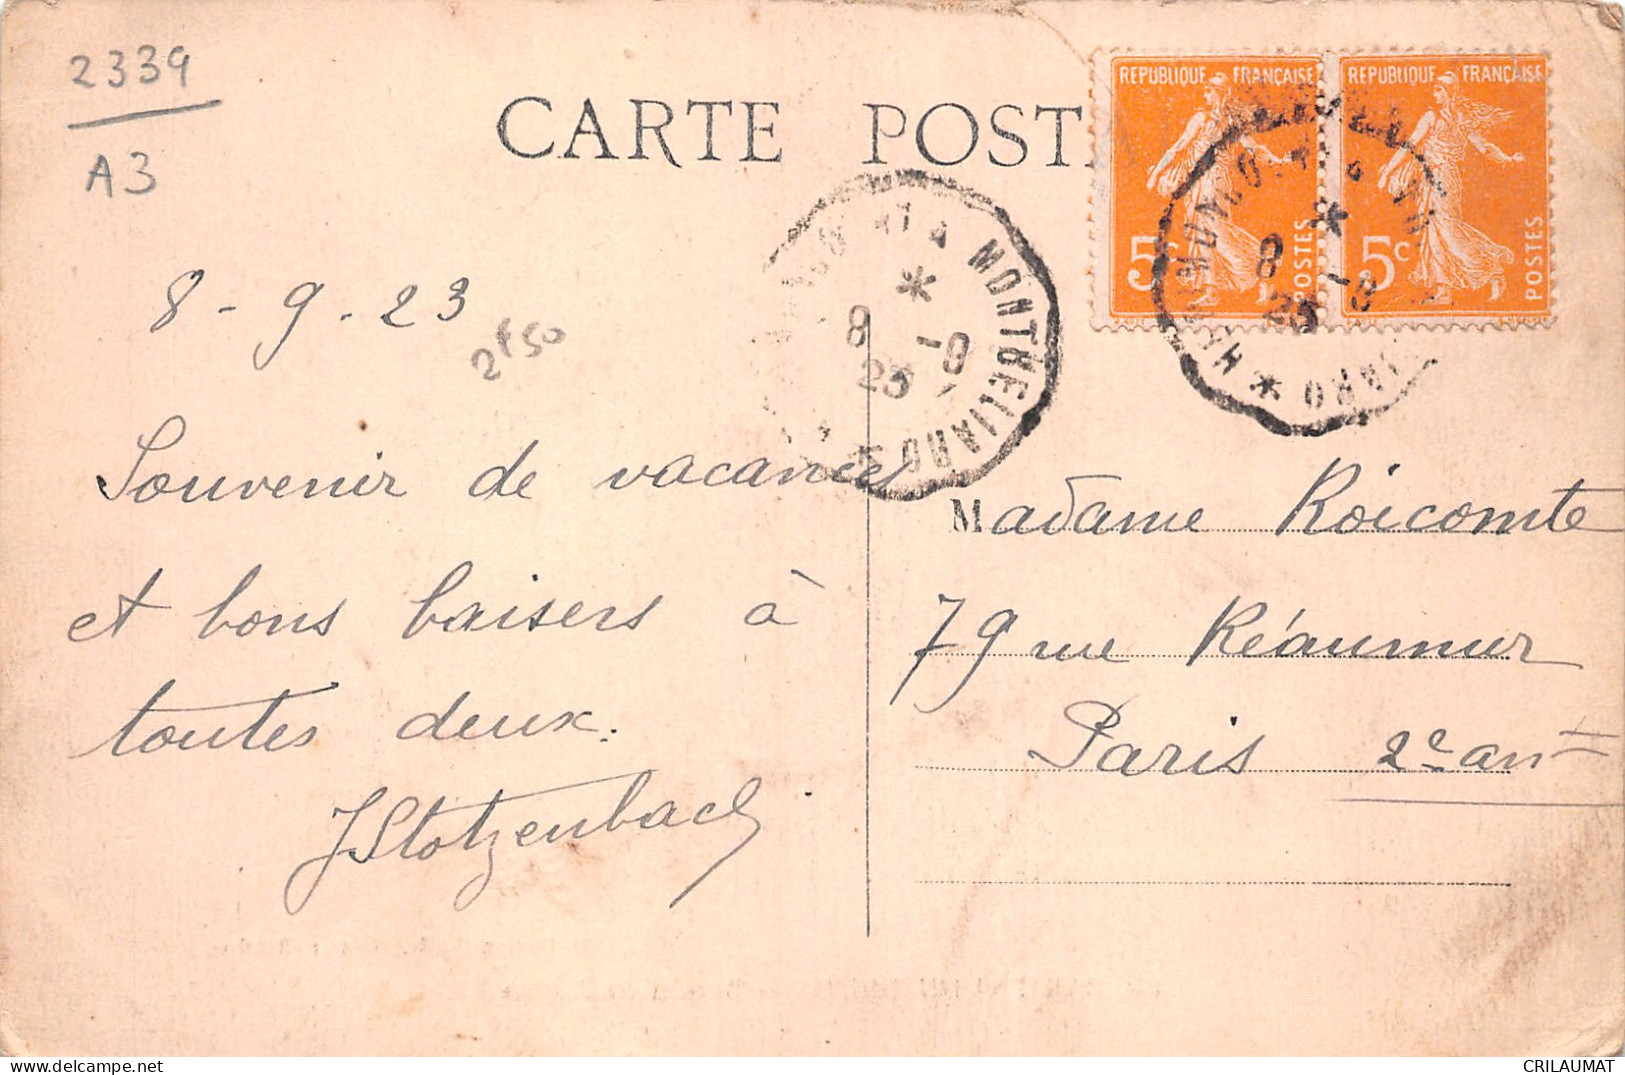 2339
A3
CARTE POST
REPUBLIQUE FRANÇAISE
5c
POSTES
REPUBLIQUE FRANÇAISE
5c
POSTES
MONTBELIARD
8 -9
23
8 -9
23
8 - 9 - 23
2f50
Souvenir de vacances
et bons baisers à
toutes deux.
JStotzenbach
Madame Roicomte
79 rue Réaumur
Paris 2e arrt
CRILAUMAT